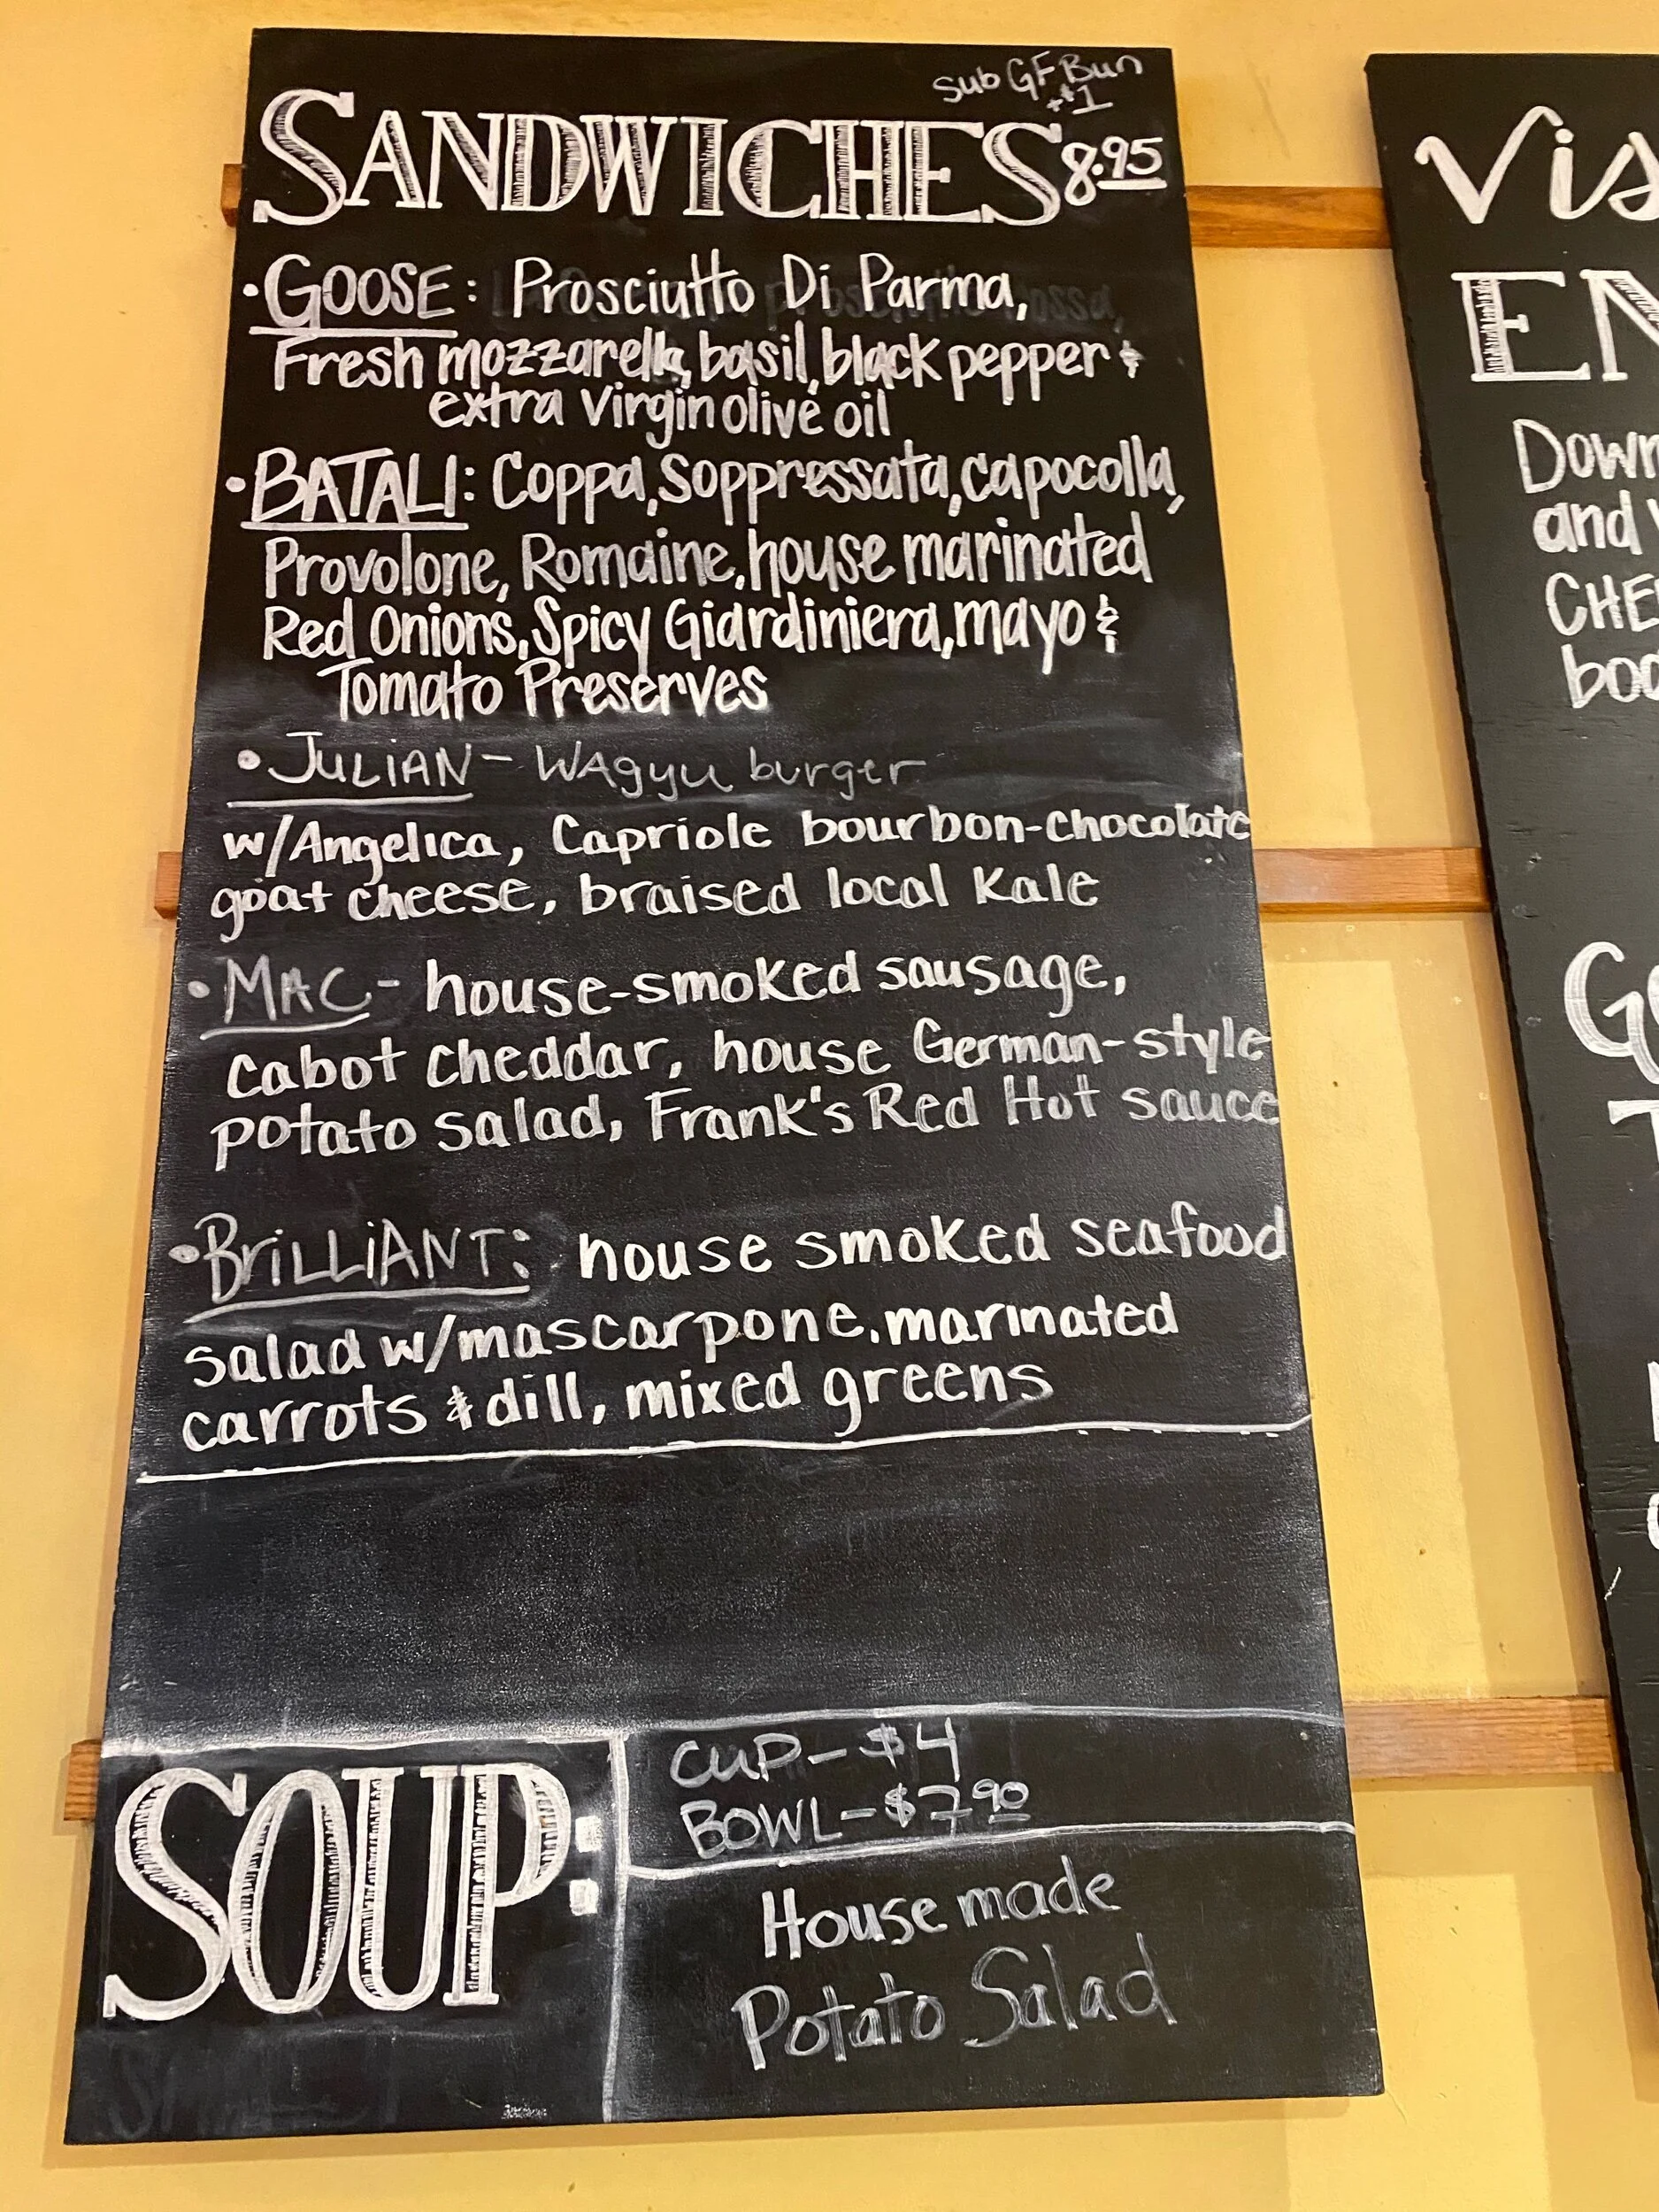 Sub GF Bun
+$1
SANDWICHES 8.95
• GOOSE: Prosciutto Di Parma,
Fresh mozzarella, basil, black pepper &
extra virgin olive oil
• BATALI: Coppa, Soppressata, capocolla,
Provolone, Romaine, house marinated
Red Onions, Spicy Giardiniera, mayo &
Tomato Preserves
• JULIAN - WAgyu burger
w/Angelica, Capriole bourbon-chocolate
goat cheese, braised local kale
• MAC - house-smoked sausage,
cabot cheddar, house German-style
potato salad, Frank's Red Hot sauce
• BRiLLiANT: house smoked seafood
salad w/mascarpone, marinated
carrots & dill, mixed greens
SOUP:
CUP - $4
BOWL - $7.90
House made
Potato Salad
Vis
EN
Down
and
CHE
boo